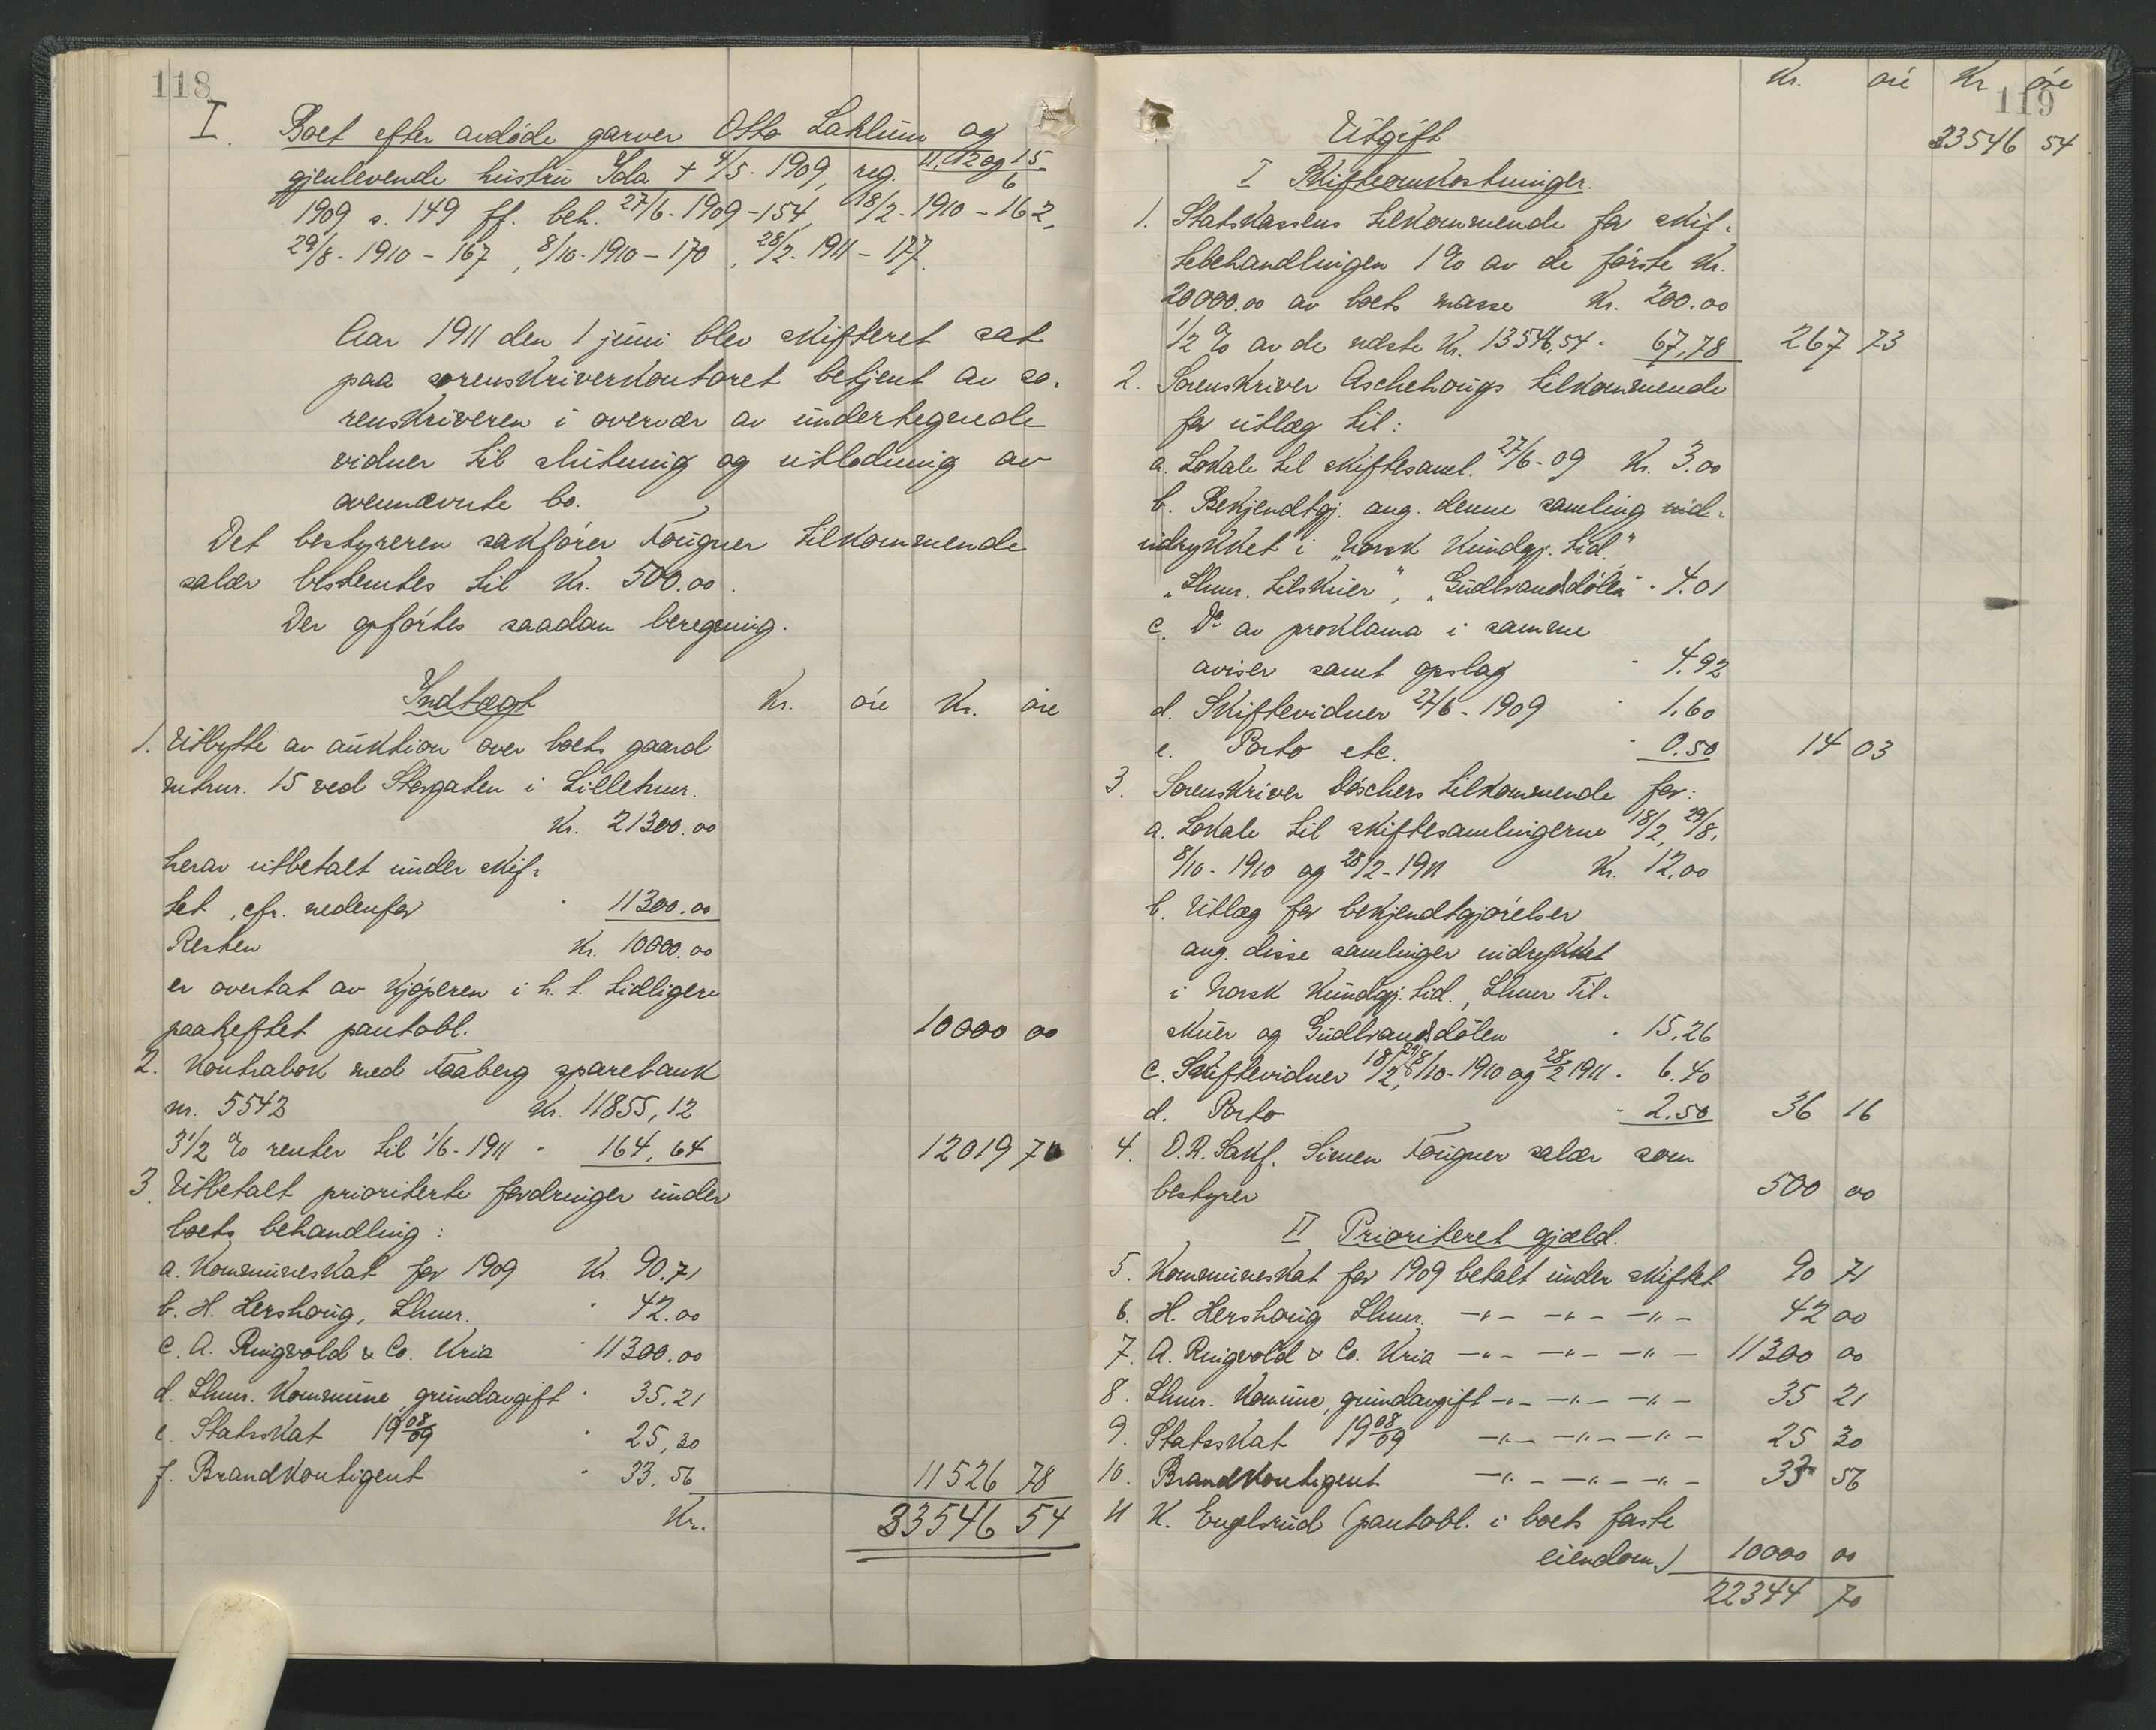 118
I. Boet efter avdöde garver Otto Laklum og
gjenlevende hustru Ida + 4/5. 1909, reg. 11, 12 og 15/6
1909 s. 149 ff. beh. 27/6. 1909 - 154, 18/2. 1910 - 162,
29/8. 1910 - 167, 8/10. 1910 - 170, 28/2. 1911 - 177.
Aar 1911 den 1 juni blev skifteret sat
paa sorenskriverkontoret betjent av so-
renskriveren i overvær av undertegnede
vidner til slutning og utlodning av
ovennævnte bo.
Det bestyreren sakförer Fougner tilkommende
salær bestemtes til Kr. 500.00.
Der opförtes saadan beregning.
Indtægt Kr. öre Kr. öre
1. Utbytte av auktion over boets gaard
mtrnr. 15 ved Storgaten i Lillehmr.
Kr. 21300.00
herav utbetalt under skif-
tet, cfr. nedenfor " 11300.00
Resten Kr. 10000.00
er overtat av kjöperen i h. t. tidligere
paaheftet pantobl. 10000 00
2. Kontrabok med Faaberg sparebank
nr. 5543 Kr. 11855,12
3 1/2 % renter til 1/6 - 1911 " 164,64 12019 76
3. Utbetalt prioriterte fordringer under
boets behandling:
a. Kommuneskat for 1909 Kr. 90.71
b. H. Hershoug, Lhmr. " 42.00
c. A. Ringvold & Co. Kria " 11300.00
d. Lhmr. Kommune, grundavgift " 35.21
e. Statsskat 1908/09 " 25,30
f. Brandkontigent " 33.56 11526 78
Kr. 33546 54
119
Kr. öre Kr öre
Utgift 33546 54
I Skifteomkostninger.
1. Statskassens tilkommende for skif-
tebehandlingen 1 % av de förste Kr.
20000.00 av boets masse Kr. 200.00
1/2 % av de næste Kr. 13546,54 " 67,78 267 73
2. Sorenskriver Aschehougs tilkommende
for utlæg til:
a. Lokale til skiftesaml. 27/6 - 09 Kr. 3.00
b. Bekjendtgj. ang. denne samling ind-
indrykket i „Norsk Kundgj. tid."
„Lhmr. tilskuer", „Gudbrandsdölen" " 4.01
c. Do av proklama i samme
aviser samt opslag " 4.92
d. Skiftevidner 27/6 - 1909 " 1.60
e. Porto etc. " 0.50 14 03
3. Sorenskriver Löschers tilkommende for:
a. Lokale til skiftesamlingerne 18/2, 29/8,
8/10 - 1910 og 28/2 - 1911 Kr. 12.00
b. Utlæg for bekjendtgjörelser
ang. disse samlinger indrykket
i Norsk Kundgj. tid., Lhmr Til-
skuer og Gudbrandsdölen " 15.26
c. Skiftevidner 18/2, 29/8, 8/10 - 1910 og 28/2 1911 " 6.40
d. Porto " 2.50 36 16
4. O.R. Sakf. Simen Fougner salær som
bestyrer 500 00
II Prioriteret gjæld.
5. Kommuneskat for 1909 betalt under skiftet 90 71
6. H. Hershoug Lhmr. -"- -"- -"- 42 00
7. A. Ringvold & Co. Kria -"- -"- -"- 11300 00
8. Lhmr. Komune, grundavgift -"- -"- -"- 35 21
9. Statsskat 1908/09 -"- -"- -"- 25 30
10. Brandkontigent -"- -"- -"- 33 56
11 K. Engelsrud (pantobl. i boets faste
eiendom) 10000 00
22344 70